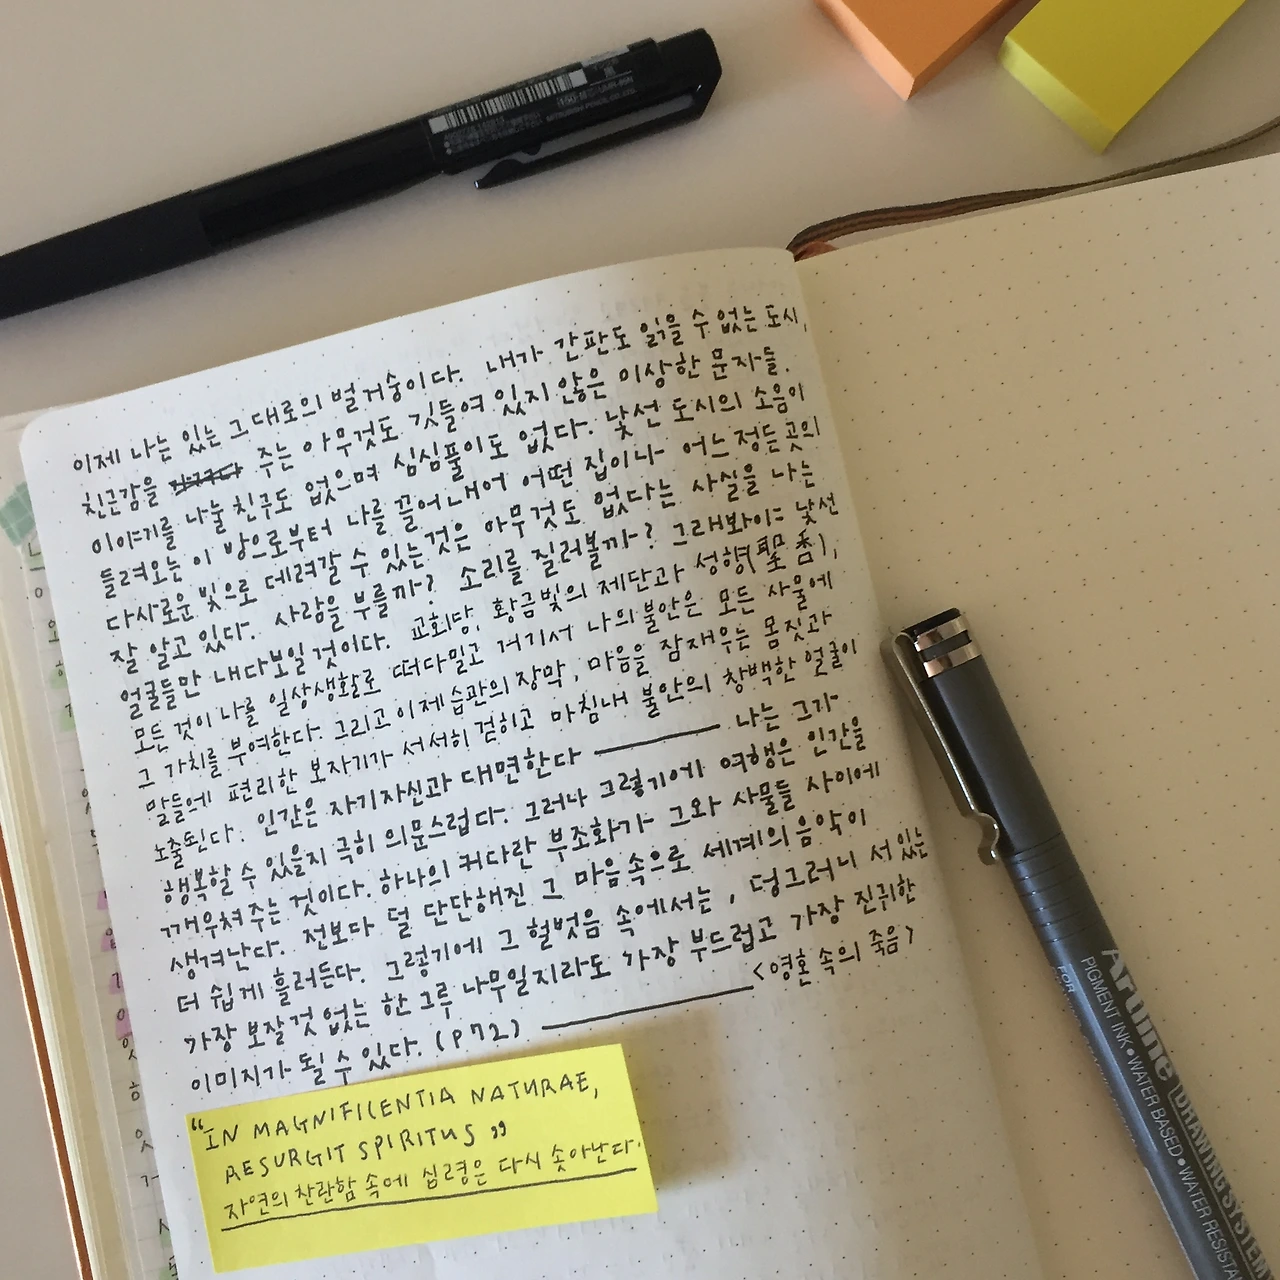 이제 나는 있는 그대로의 벌거숭이다. 내가 간판도 읽을 수 없는 도시,
친근감을 주는 아무것도 깃들여 있지 않은 이상한 문자들.
이야기를 나눌 친구도 없으며 심심풀이도 없다. 낯선 도시의 소음이
들려오는 이 방으로부터 나를 끌어내어 어떤 집이나 어느 정든곳의
다사로운 빛으로 데려갈 수 있는 것은 아무것도 없다는 사실을 나는
잘 알고 있다. 사람을 부를까? 소리를 질러볼까? 그래봐야 낯선
얼굴들만 내다보일 것이다. 교회당, 황금빛의 제단과 성향(聖香),
모든 것이 나를 일상생활로 떠다밀고 거기서 나의 불안은 모든 사물에
그 가치를 부여한다. 그리고 이제 습관의 장막, 마음을 잠재우는 몸짓과
말들에 편리한 보자기가 서서히 걷히고 마침내 불안의 창백한 얼굴이
노출된다. 인간은 자기자신과 대면한다 — 나는 그가
행복할 수 있을지 극히 의문스럽다. 그러나 그렇기에 여행은 인간을
깨우쳐주는 것이다. 하나의 커다란 부조화가 그와 사물들 사이에
생겨난다. 전보다 덜 단단해진 그 마음속으로 세계의 음악이
더 쉽게 흘러든다. 그렇기에 그 헐벗음 속에서는, 덩그러니 서 있는
가장 보잘것 없는 한 그루 나무일지라도 가장 부드럽고 가장 진귀한
이미지가 될 수 있다. (P72) — <영혼 속의 죽음>
“IN MAGNIFICENTIA NATURAE,
RESURGIT SPIRITUS”
자연의 찬란함 속에 심령은 다시 솟아난다.
Artline DRAWING SYSTEM
PIGMENT INK • WATER BASED • WATER RESISTA
FOR